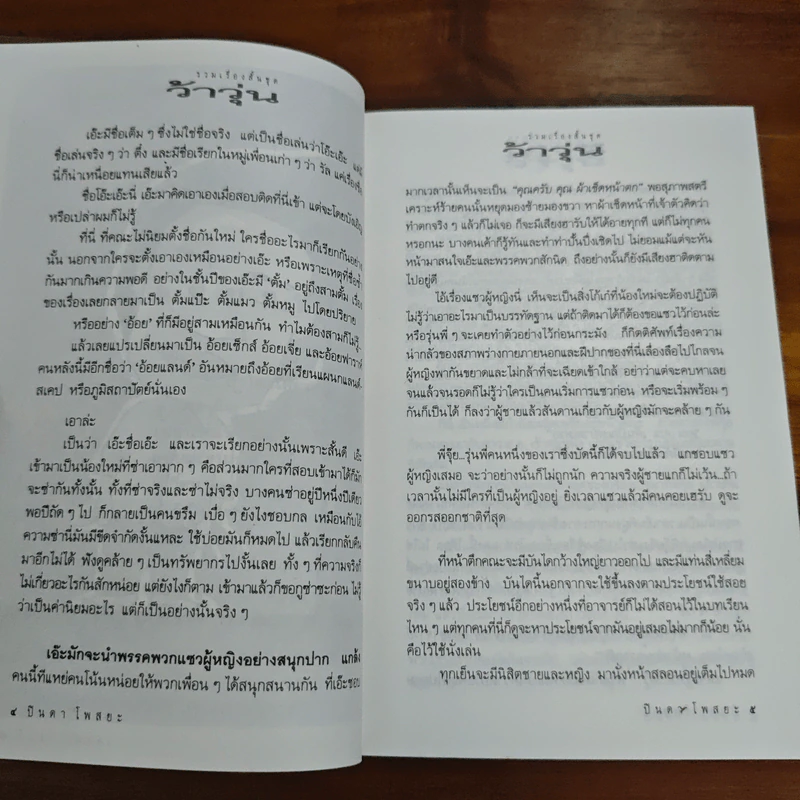 รวมเรื่องสั้นชุด
ว้าวุ่น
เอ๊ะมีชื่อเต็ม ๆ ซึ่งไม่ใช่ชื่อจริง แต่เป็นชื่อเล่นว่าโอ๊ะเอ๊ะ
ชื่อเล่นจริง ๆ ว่า ตึ๋ง และมีชื่อเรียกในหมู่เพื่อนเก่า ๆ ว่า รัล แค่เรื่องชื่อ
นี่ก็น่าเหนื่อยแทนเสียแล้ว
ชื่อโอ๊ะเอ๊ะนี่ เอ๊ะมาคิดเอาเองเมื่อสอบติดที่นี่เข้า แต่จะโดยบังเอิญ
หรือเปล่าผมก็ไม่รู้
ที่นี่ ที่คณะไม่นิยมตั้งชื่อกันใหม่ ใครชื่ออะไรมาก็เรียกกันอย่าง
นั้น นอกจากใครจะตั้งเอาเองเหมือนอย่างเอ๊ะ หรือเพราะเหตุที่ชื่อซ้ำ
กันมากเกินความพอดี อย่างในชั้นปีของเอ๊ะมี ‘ตั้ม’ อยู่ถึงสามตั้ม เรื่อง
ของเรื่องเลยกลายมาเป็น ตั้มแป๊ะ ตั้มแมว ตั้มหมู ไปโดยปริยาย
หรืออย่าง ‘อ้อย’ ที่ก็มีอยู่สามเหมือนกัน ทำไมต้องสามก็ไม่รู้
แล้วเลยแปรเปลี่ยนมาเป็น อ้อยเซ็กส์ อ้อยเจี่ย และอ้อยฟาราห์
คนหลังนี้มีอีกชื่อว่า ‘อ้อยแลนด์’ อันหมายถึงอ้อยที่เรียนแผนกแลนด์-
สเคป หรือภูมิสถาปัตย์นั่นเอง
เอาล่ะ
เป็นว่า เอ๊ะชื่อเอ๊ะ และเราจะเรียกอย่างนั้นเพราะสั้นดี เอ๊ะ
เข้ามาเป็นน้องใหม่ที่ซ่าเอามาก ๆ คือส่วนมากใครที่สอบเข้ามาได้ก็มัก
จะซ่ากันทั้งนั้น ทั้งที่ซ่าจริงและซ่าไม่จริง บางคนซ่าอยู่ปีหนึ่งปีเดียว
พอปีถัด ๆ ไป ก็กลายเป็นคนขรึม เบื่อ ๆ ยังไงชอบกล เหมือนกับไอ้
ความซ่านี่มันมีขีดจำกัดงั้นแหละ ใช้บ่อยมันก็หมดไป แล้วเรียกกลับคืน
มาอีกไม่ได้ ฟังดูคล้าย ๆ เป็นทรัพยากรไปงั้นเลย ทั้ง ๆ ที่ความจริงก็
ไม่เกี่ยวอะไรกันสักหน่อย แต่ยังไงก็ตาม เข้ามาแล้วก็ขอกูซ่าซะก่อน ไม่รู้
ว่าเป็นค่านิยมอะไร แต่ก็เป็นอย่างนั้นจริง ๆ
เอ๊ะมักจะนำพรรคพวกแซวผู้หญิงอย่างสนุกปาก แกล้ง
คนนี้ทีแหย่คนโน้นหน่อยให้พวกเพื่อน ๆ ได้สนุกสนานกัน ที่เอ๊ะชอบ
๔ ปินดา โพสยะ
รวมเรื่องสั้นชุด
ว้าวุ่น
มากเวลานั้นเห็นจะเป็น “คุณครับ คุณ ผ้าเช็ดหน้าตก” พอสุภาพสตรี
เคราะห์ร้ายคนนั้นหยุดมองซ้ายมองขวา หาผ้าเช็ดหน้าที่เจ้าตัวคิดว่า
ทำตกจริง ๆ แล้วก็ไม่เจอ ก็จะมีเสียงฮารับให้ได้อายทุกที แต่ก็ไม่ทุกคน
หรอกนะ บางคนเค้าก็รู้ทันและทำท่าปั้นปึ่งเชิดไป ไม่ยอมแม้แต่จะหัน
หน้ามาสนใจเอ๊ะและพรรคพวกสักนิด ถึงอย่างนั้นก็ยังมีเสียงฮาติดตาม
ไปอยู่ดี
ไอ้เรื่องแซวผู้หญิงนี่ เห็นจะเป็นสิ่งโก้เก๋ที่น้องใหม่จะต้องปฏิบัติ
ไม่รู้ว่าเอาอะไรมาเป็นบรรทัดฐาน แต่ถ้าติดมาได้ก็ต้องขอแซวไว้ก่อนล่ะ
หรือรุ่นพี่ ๆ จะเคยทำตัวอย่างไว้ก่อนกระมัง ก็กิตติศัพท์เรื่องความ
น่ากลัวของสภาพร่างกายภายนอกและฝีปากของที่นี่เลื่องลือไปไกลจน
ผู้หญิงพากันขยาดและไม่กล้าที่จะเฉียดเข้าใกล้ อย่าว่าแต่จะคบหาเลย
จนแล้วจนรอดก็ไม่รู้ว่าใครเป็นคนเริ่มการแซวก่อน หรือจะเริ่มพร้อม ๆ
กันก็เป็นได้ ก็ลงว่าผู้ชายแล้วสันดานเกี่ยวกับผู้หญิงมักจะคล้าย ๆ กัน
พี่จุ๊ย...รุ่นพี่คนหนึ่งของเราซึ่งบัดนี้ก็ได้จบไปแล้ว แกชอบแซว
ผู้หญิงเสมอ จะว่าอย่างนั้นก็ไม่ถูกนัก ความจริงผู้ชายแกก็ไม่เว้น...ถ้า
เวลานั้นไม่มีใครที่เป็นผู้หญิงอยู่ ยิ่งเวลาแซวแล้วมีคนคอยเฮรับ ดูจะ
ออกรสออกชาติที่สุด
ที่หน้าตึกคณะจะมีบันไดกว้างใหญ่ยาวออกไป และมีแท่นสี่เหลี่ยม
ขนาบอยู่สองข้าง บันไดนี้นอกจากจะใช้ขึ้นลงตามประโยชน์ใช้สอย
จริง ๆ แล้ว ประโยชน์อีกอย่างหนึ่งที่อาจารย์ก็ไม่ได้สอนไว้ในบทเรียน
ไหน ๆ แต่ทุกคนที่นี่ก็ดูจะหาประโยชน์จากมันอยู่เสมอไม่มากก็น้อย นั่น
คือไว้ใช้นั่งเล่น
ทุกเย็นจะมีนิสิตชายและหญิง มานั่งหน้าสลอนอยู่เต็มไปหมด
ปินดา โพสยะ ๕